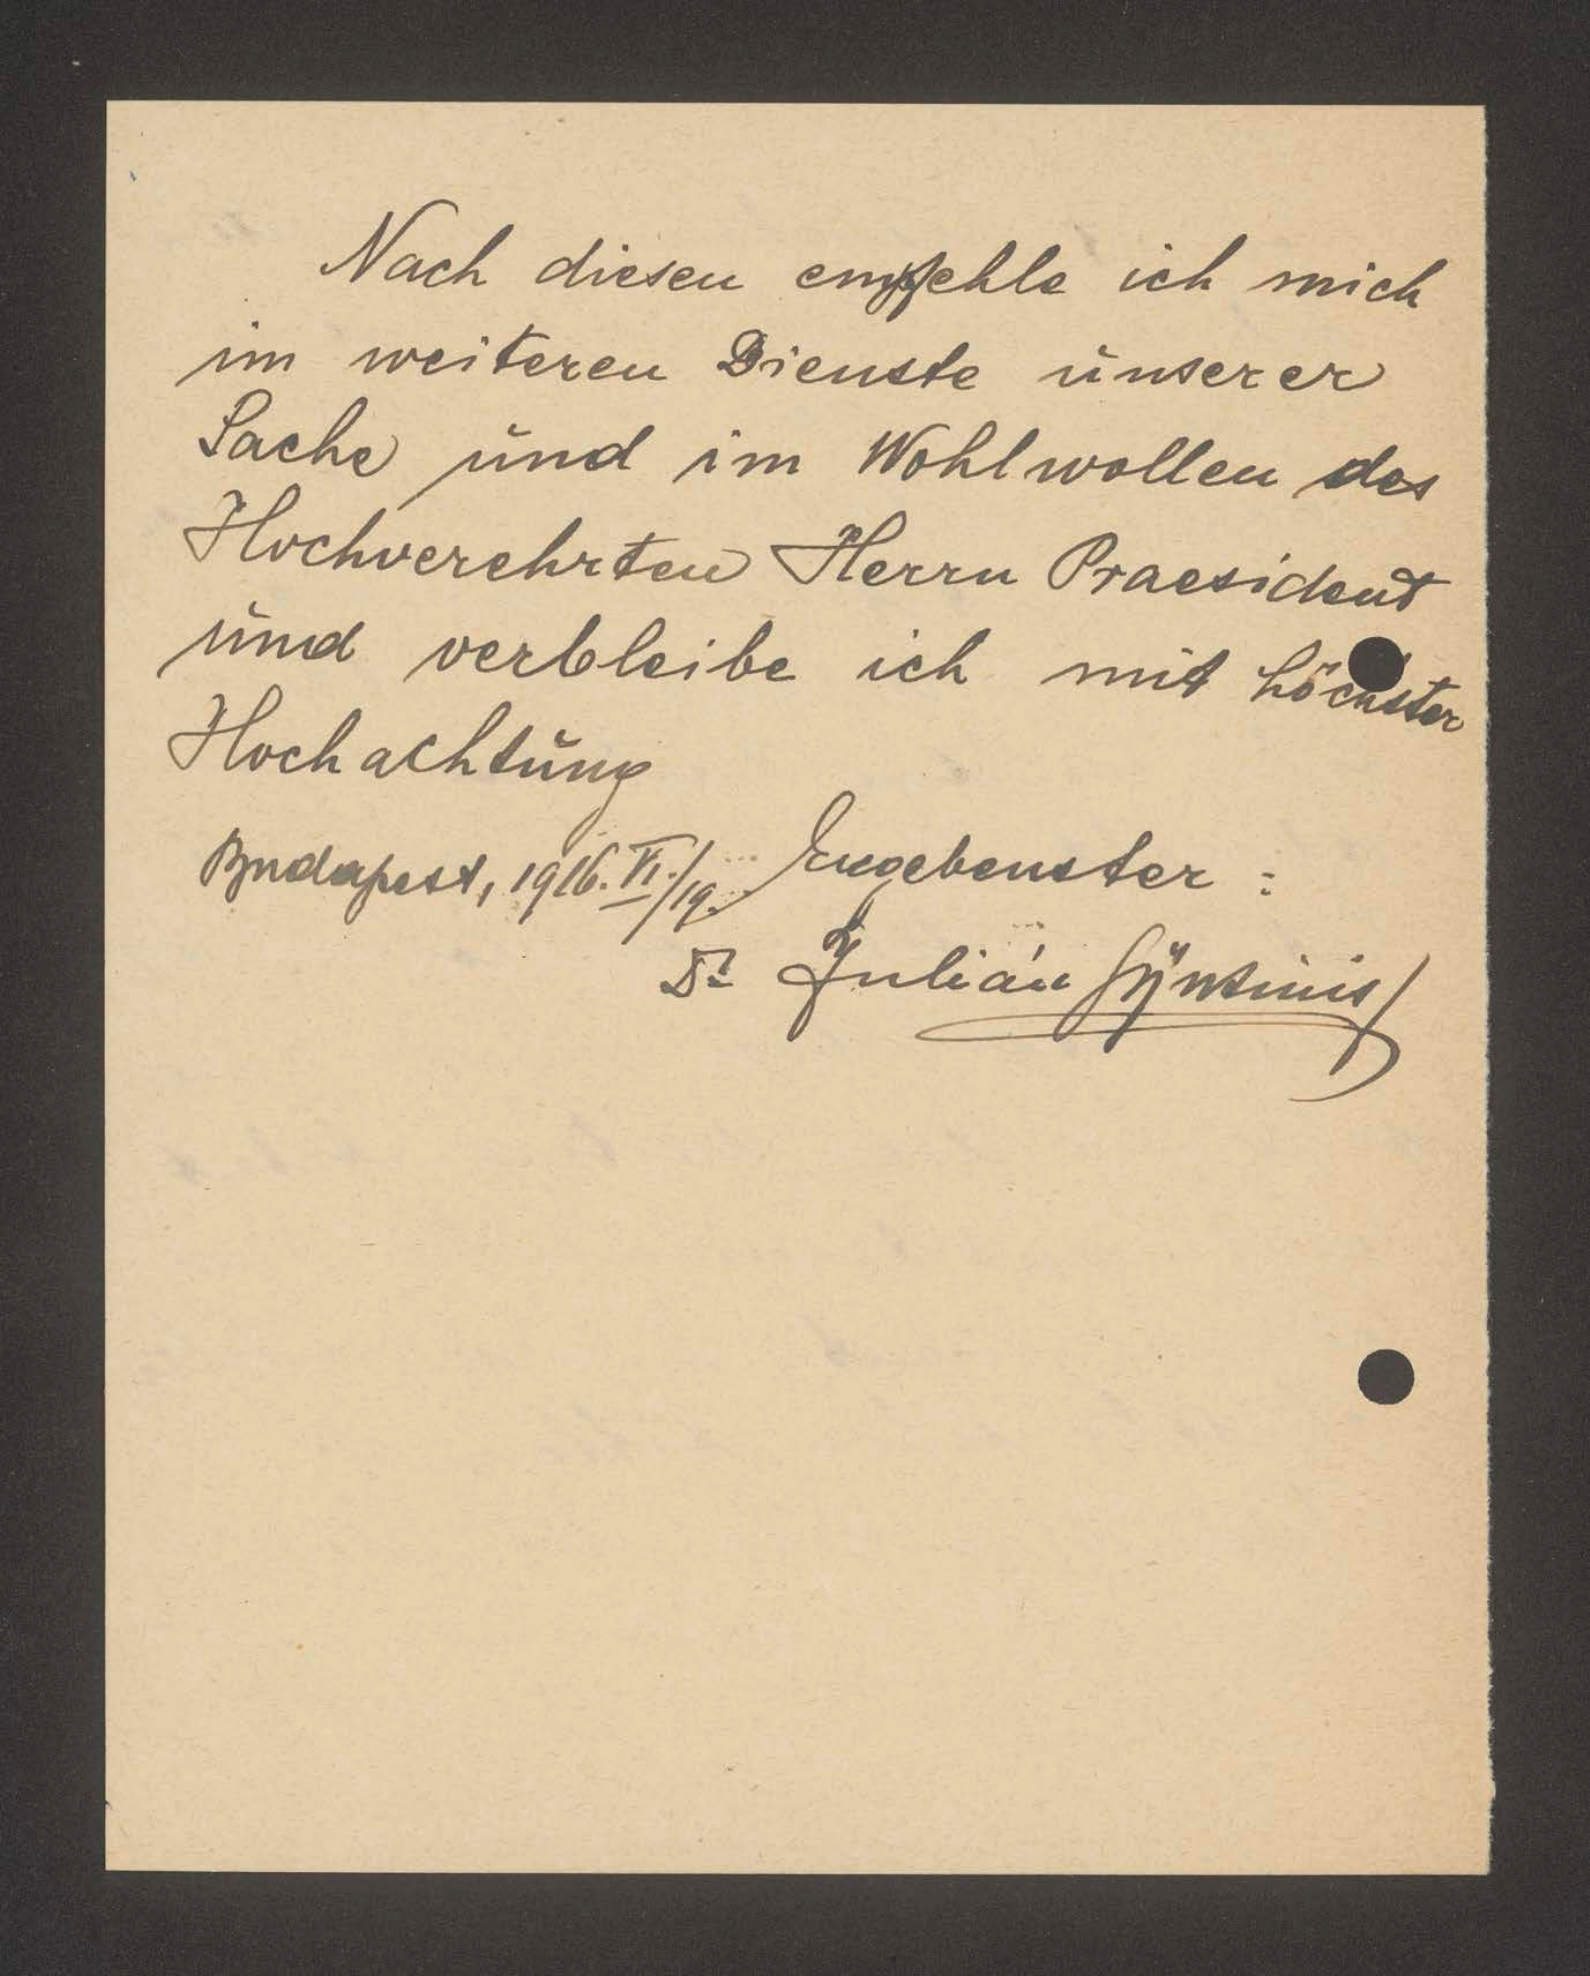 Nach diesen empfehle ich mich
im weiteren Dienste unserer
Sache und im Wohlwollen des
Hochverehrten Herrn Praesident
und verbleibe ich mit höchster
Hochachtung
Budapest, 1916. VI./19. Ergebenster :
Dr Julián